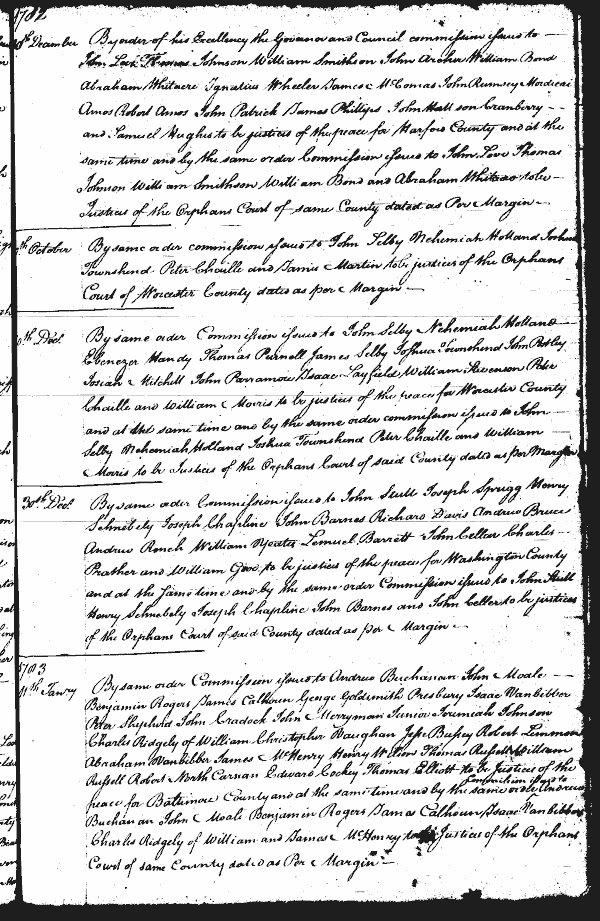 1782
December By order of his Excellency the Governor and Council commission issued to
John Love Thomas Johnson William Smithson John Archer William Bond
Abraham Whitacre Ignatius Wheeler James McComas John Rumsey Mordicai
Amos Robert Amos John Patrick James Phillips John Hall son Cranberry
and Samuel Hughs to be justices of the peace for Harford County and at the
same time and by the same order Commission issued to John Love Thomas
Johnson William Smithson William Bond and Abraham Whitacre to be
Justices of the Orphans Court of same County dated as Per Margin
th October By same order commission issued to John Selby Nehemiah Holland Joshua
Townshend Peter Chaille and James Martin to be justices of the Orphans
Court of Worcester County dated as per Margin
th Decr. By same order Commission issued to John Selby Nehemiah Holland
Ebenezer Handy Thomas Purnell James Selby Joshua Townshend John Postly
Josiah Mitchell John Parramore Isaac Layfield William Stevenson Peter
Chaille and William Morris to be justices of the peace for Worcester County
and at the same time and by the same order commission issued to John
Selby Nehemiah Holland Joshua Townshend Peter Chaille and William
Morris to be Justices of the Orphans Court of said County dated as per Margin
30th Decr. By same order Commission issued to John Stull Joseph Sprigg Henry
Schnebely Joseph Chapline John Barnes Richard Davis Andrew Bruce
Andrew Rench William Yeates Lemuel Barrett John Cellar Charles
Prather and William Good, to be justices of the peace for Washington County
and at the same time and by the same order Commission issued to John Stull
Henry Schnebely Joseph Chapline John Barnes and John Celler to be justices
of the Orphans Court of said County dated as per Margin
1783
11th Janry By same order Commission issued to Andrew Buchanan John Moale
Benjamin Rogers James Calhoun George Goldsmith Presbury Isaac Vanbibber
Peter Shepherd John Cradock John Merryman Junior Jeremiah Johnson
Charles Ridgely of William Christopher Vaughan Jesse Bussey Robert Lemmon
Abraham Vanbibber James McHenry Henry Wilson Thomas Russell William
Russell Robert North Carnan Edward Cockey Thomas Elliott to be justices of the
commission issued to
peace for Baltimore County and at the same time and by the same order Andrew
Buchanan John Moale Benjamin Rogers James Calhoun Isaac Vanbibber
Charles Ridgely of William and James McHenry to be Justices of the Orphans
Court of same County dated as Per Margin